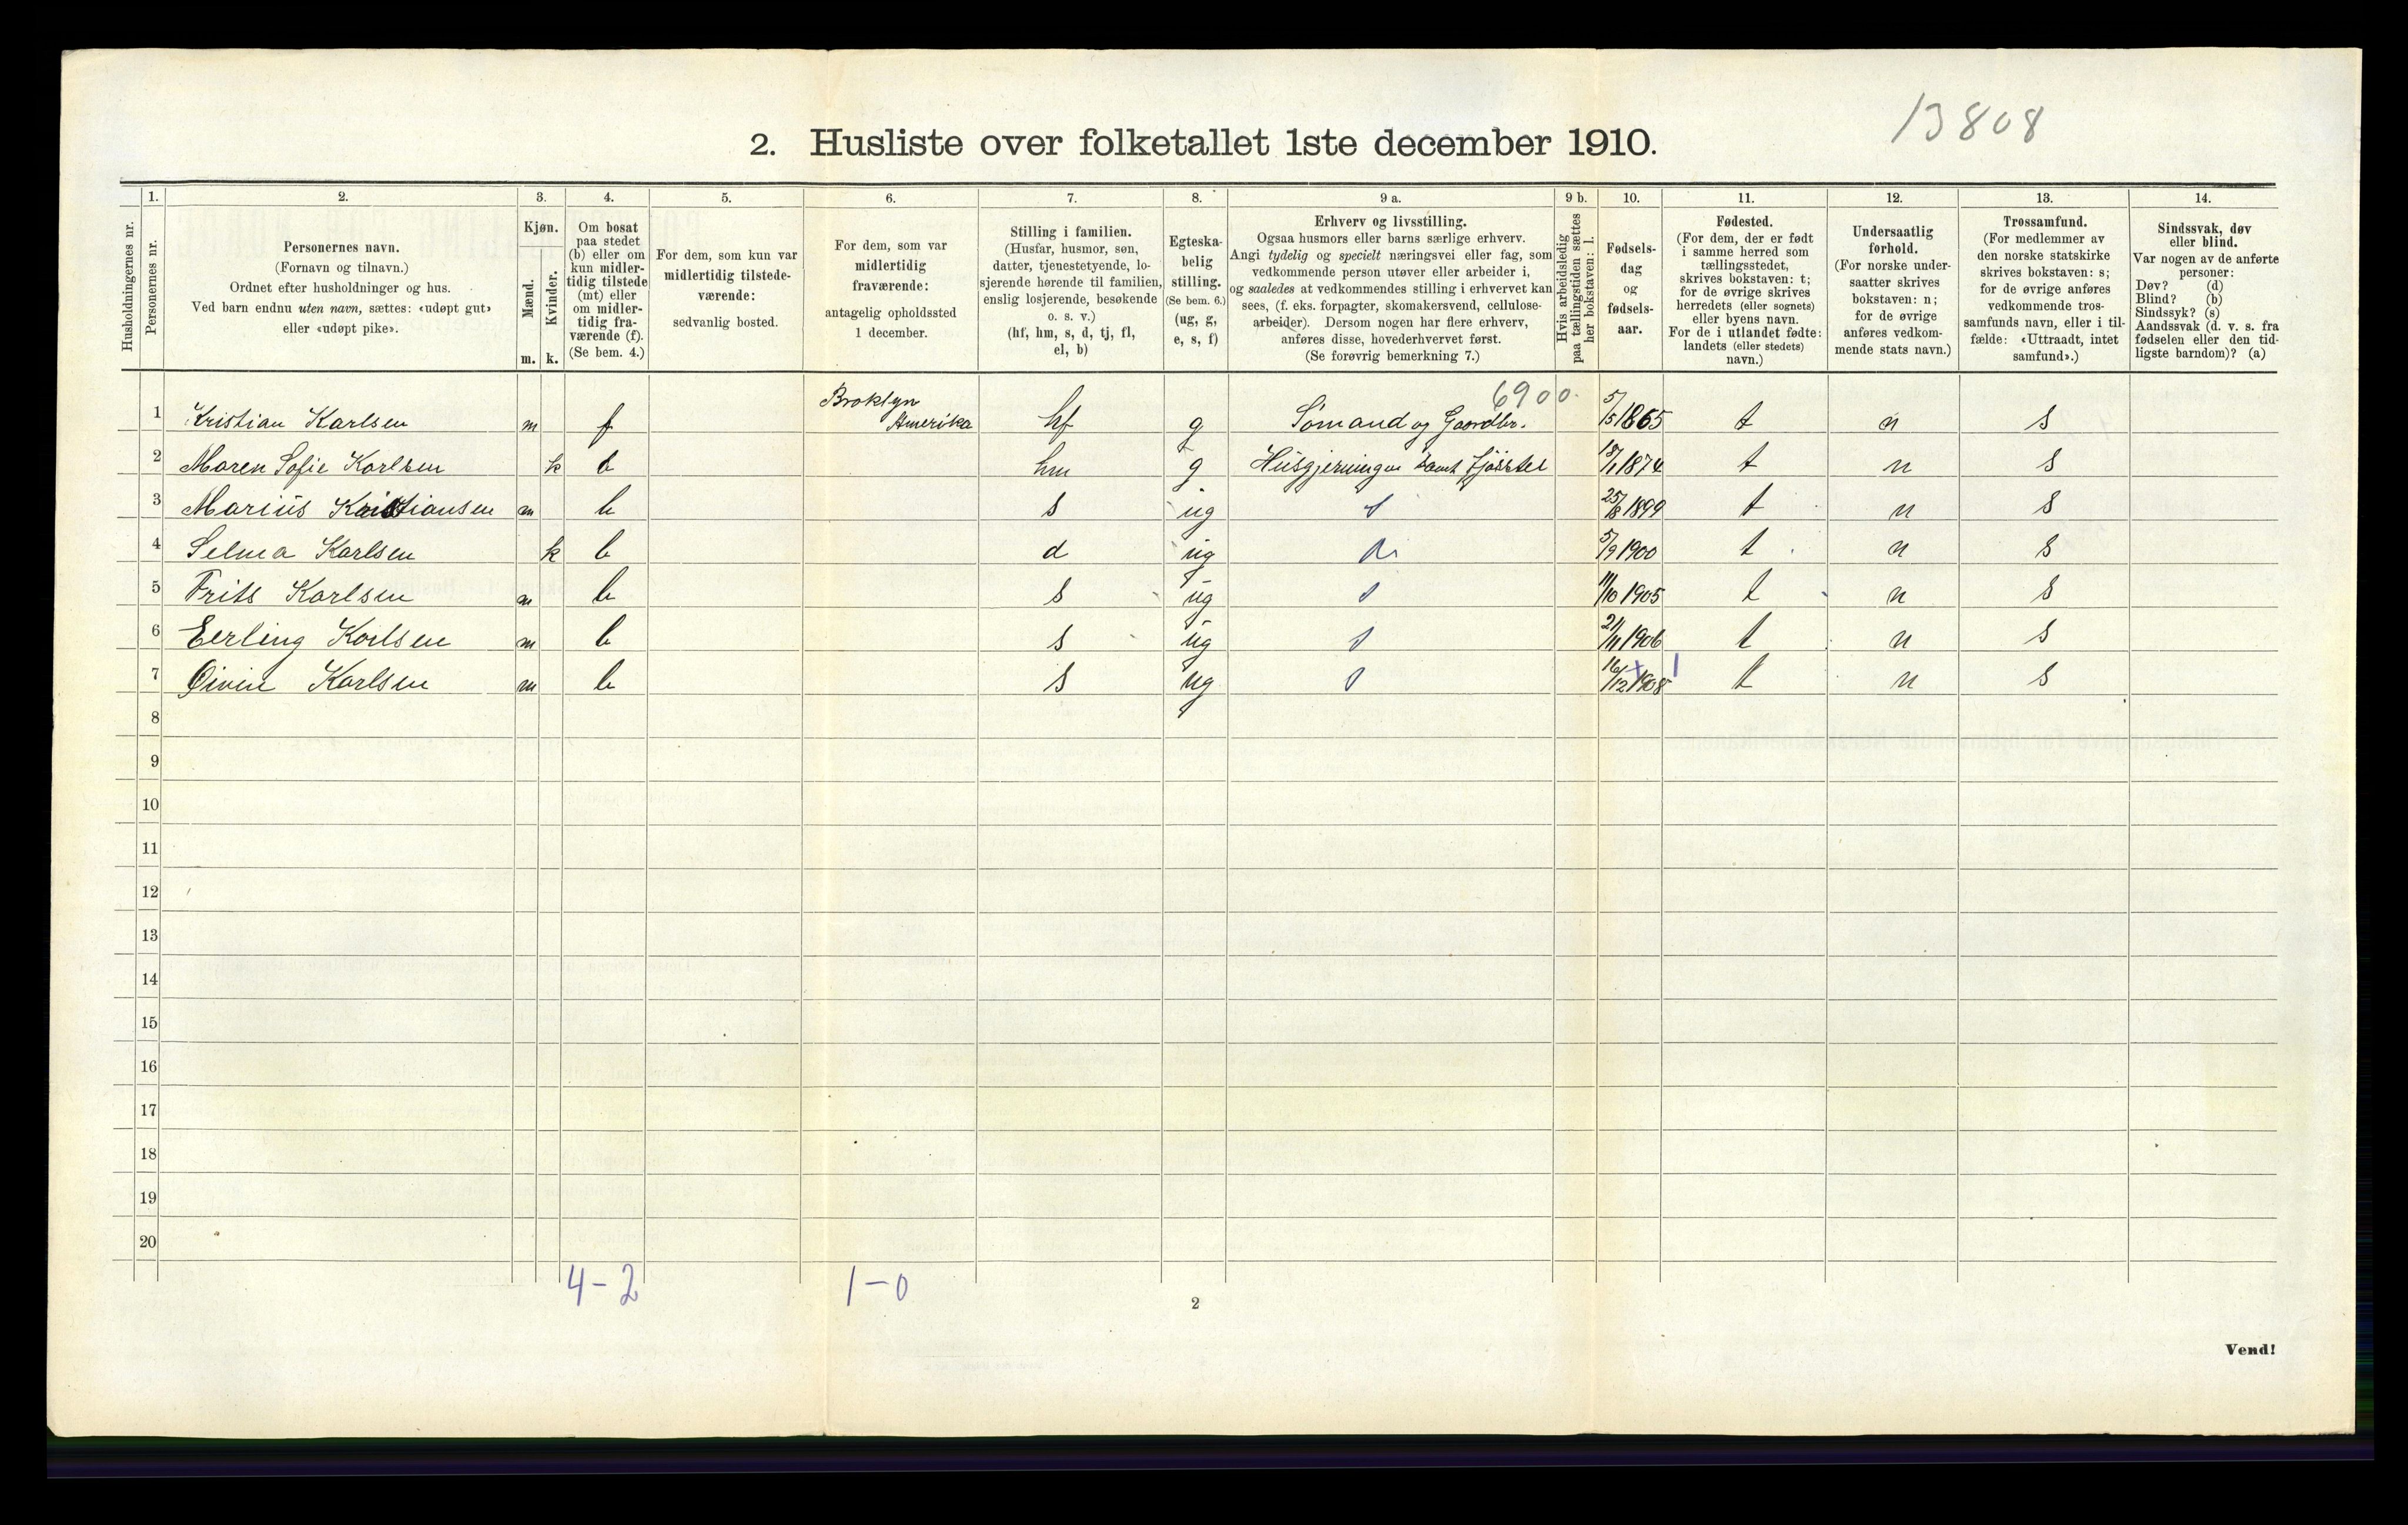 13808
2. Husliste over folketallet 1ste december 1910.
Husholdningernes nr.
1.
Personernes nr.
2.
Personernes navn.
(Fornavn og tilnavn.)
Ordnet efter husholdninger og hus.
Ved barn endnu uten navn, sættes: «udøpt gut»
eller «udøpt pike».
3.
Kjøn.
Mænd.
Kvinder.
m. k.
4.
Om bosat
paa stedet
(b) eller om
kun midler-
tidig tilstede
(mt) eller
om midler-
tidig fra-
værende (f).
(Se bem. 4.)
5.
For dem, som kun var
midlertidig tilstede-
værende:
sedvanlig bosted.
6.
For dem, som var
midlertidig
fraværende:
antagelig opholdssted
1 december.
7.
Stilling i familien.
(Husfar, husmor, søn,
datter, tjenestetyende, lo-
sjerende hørende til familien,
enslig losjerende, besøkende
o. s. v.)
(hf, hm, s, d, tj, fl,
el, b)
8.
Egteska-
belig
stilling.
(Se bem. 6.)
(ug, g,
e, s, f)
9 a.
Erhverv og livsstilling.
Ogsaa husmors eller barns særlige erhverv.
Angi tydelig og specielt næringsvei eller fag, som
vedkommende person utøver eller arbeider i,
og saaledes at vedkommendes stilling i erhvervet kan
sees, (f. eks. forpagter, skomakersvend, cellulose-
arbeider). Dersom nogen har flere erhverv,
anføres disse, hovederhvervet først.
(Se forøvrig bemerkning 7.)
9 b.
Hvis arbeidsledig
paa tællingstiden sættes
her bokstaven: l.
10.
Fødsels-
dag
og
fødsels-
aar.
11.
Fødested.
(For dem, der er født
i samme herred som
tællingsstedet,
skrives bokstaven: t;
for de øvrige skrives
herredets (eller sognets)
eller byens navn.
For de i utlandet fødte:
landets (eller stedets)
navn.)
12.
Undersaatlig
forhold.
(For norske under-
saatter skrives
bokstaven: n;
for de øvrige
anføres vedkom-
mende stats navn.)
13.
Trossamfund.
(For medlemmer av
den norske statskirke
skrives bokstaven: s;
for de øvrige anføres
vedkommende tros-
samfunds navn, eller i til-
fælde: «Uttraadt, intet
samfund».)
14.
Sindssvak, døv
eller blind.
Var nogen av de anførte
personer:
Døv? (d)
Blind? (b)
Sindssyk? (s)
Aandssvak (d. v. s. fra
fødselen eller den tid-
ligste barndom)? (a)
6900.
1 Kristian Karlsen m f Broklyn Amerika hf g Sømand og Gaardbr. 5/5 1865 t n s
2 Maren Sofie Karlsen k b hm g Husgjerningen samt fjøsstel 1874 t n s
3 Marius Kristiansen m b s ug s 25/8 1899 t n s
4 Selma Karlsen k b d ug 5/9 1900 t n s
5 Frits Karlsen m b s ug s 11/10 1905 t n s
6 Eerling Karlsen m b s ug s 21/11 1906 t n s
7 Øivin Karlsen m b s ug s 16/12 1908 t n s
8
9
10
11
12
13
14
15
16
17
18
19
20
4-2 1-0
2
Vend!